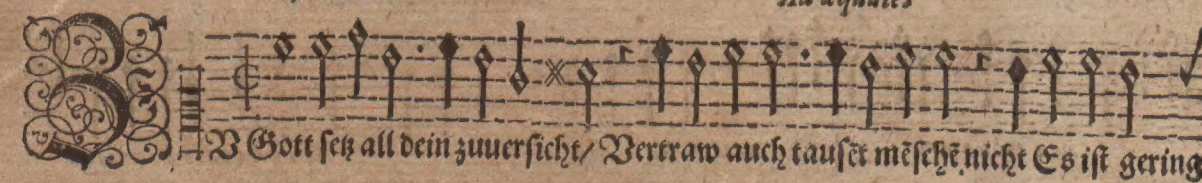 ZV Gott setz all dein zuuersicht/ Vertraw auch tausẽt mẽschẽ nicht Es ist gering